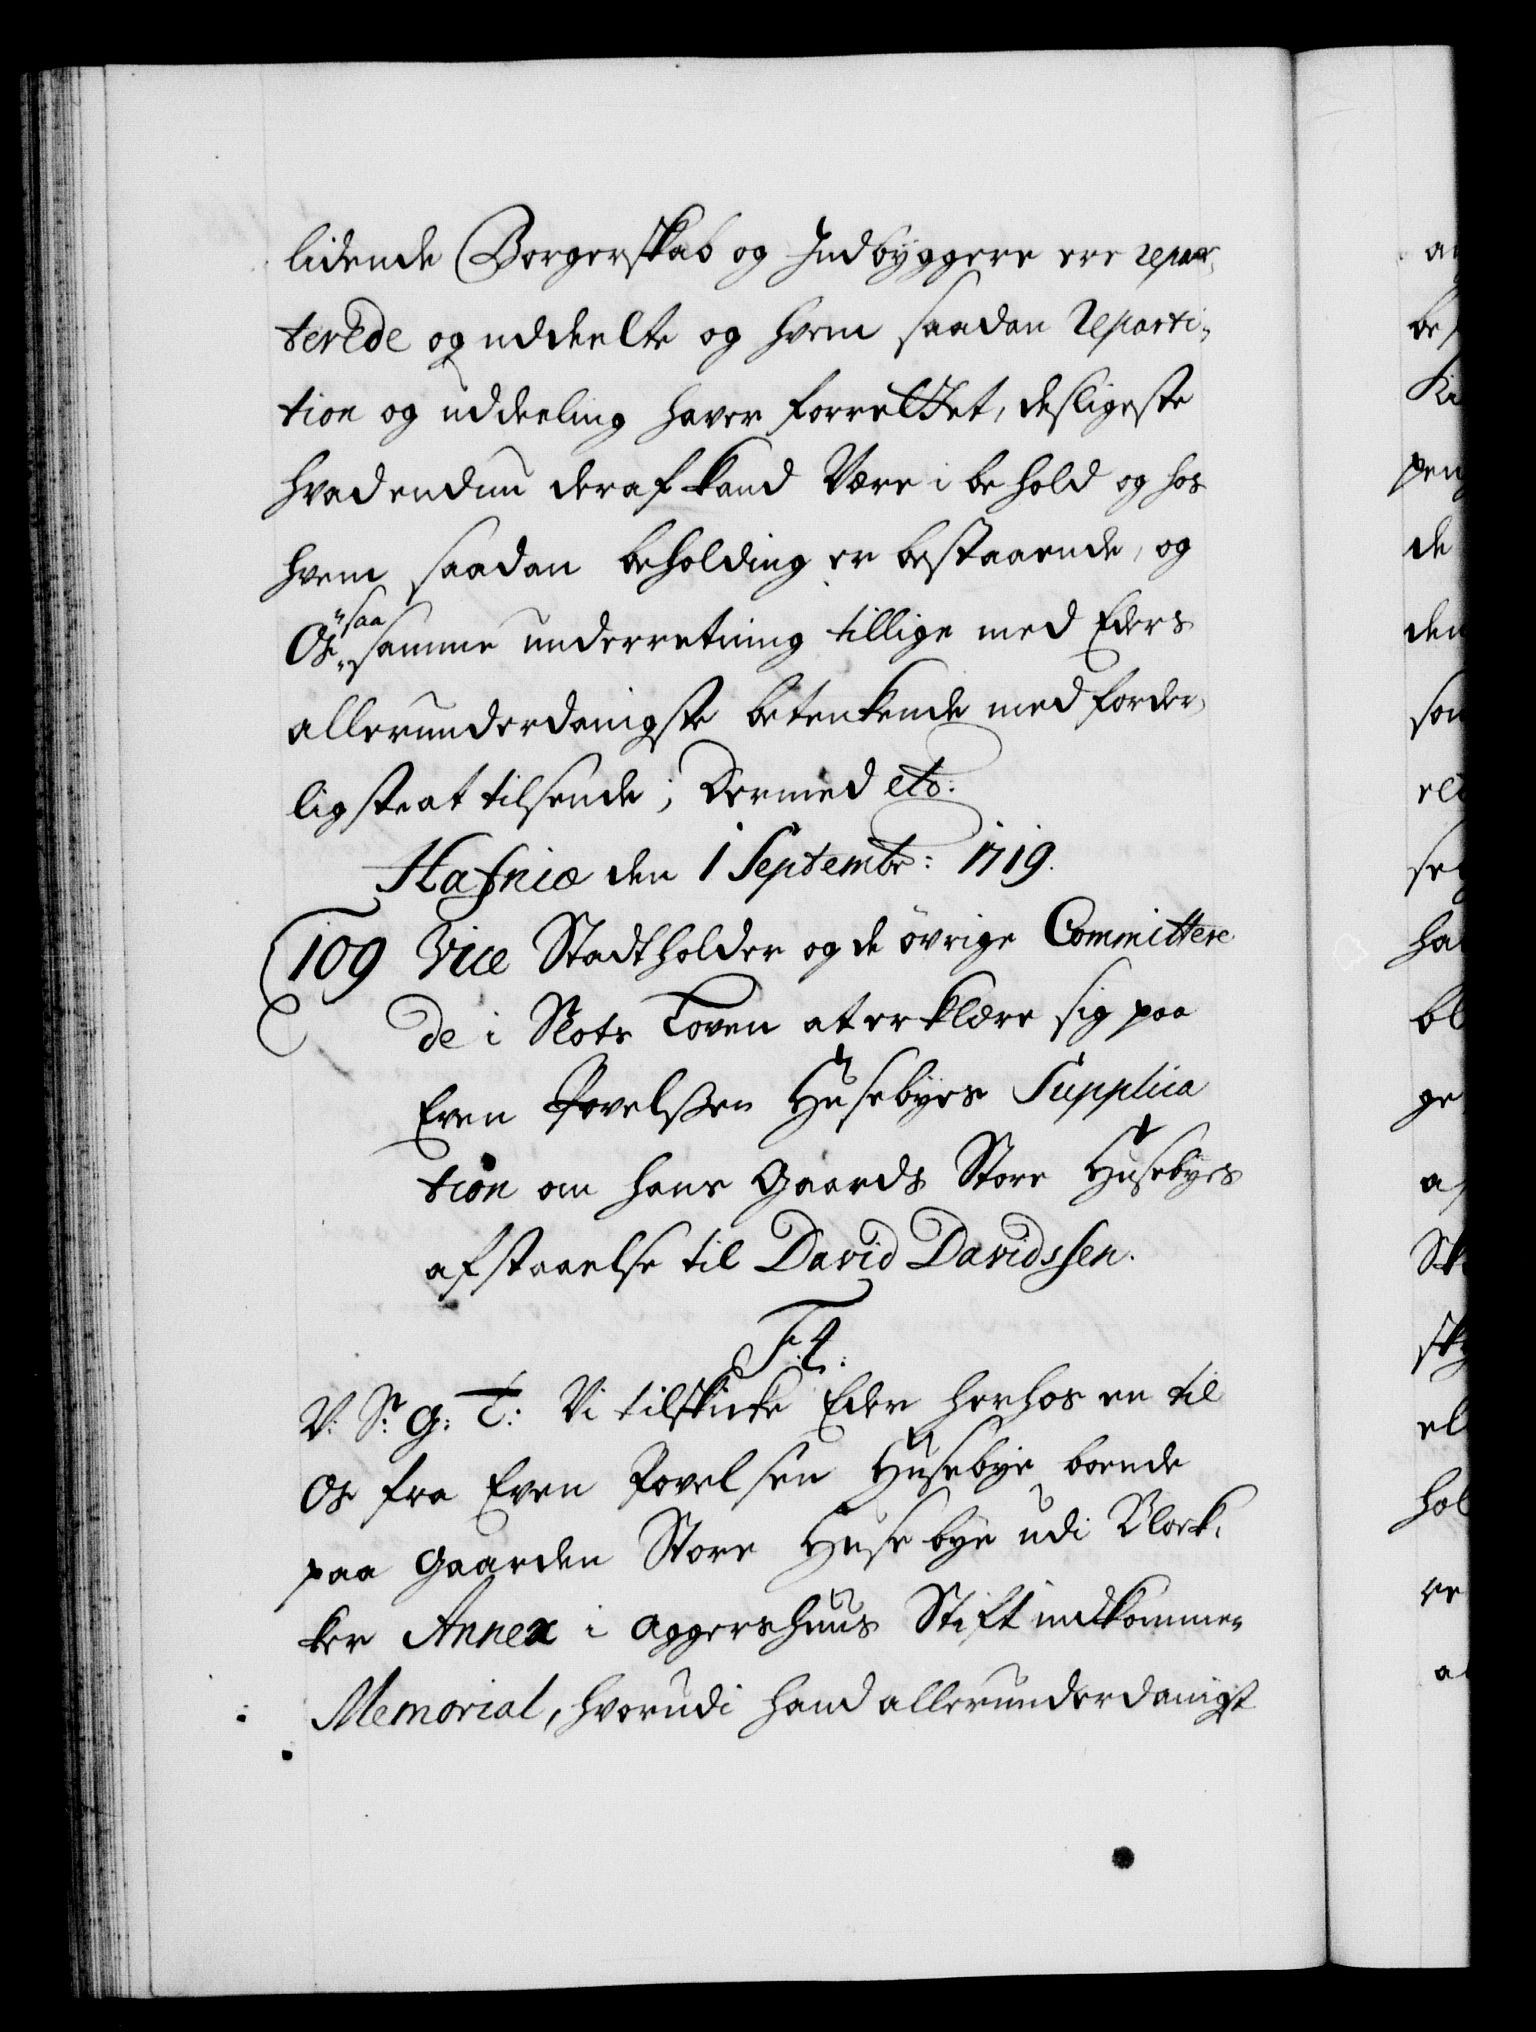 lidende Borgerskab og Indbyggere ere repar„
terede og uddeelte og hvem saadan Reparti„
tion og uddeeling haver forrettet, desligeste
hvad endnu deraf kand Være i behold og hos
hvem saadan beholding er bestaaende, og
Os „saa samme underretning tillige med Eders
allerunderdanigste betenkende med forder„
ligste at tilsende; Dermed etc:
Hafniæ den 1 Septembr: 1719.
109 Vice Stadtholder og de øvrige Committere
de i Slots Loven at erklære sig paa
Even Povelssen Husebyes Supplica
tion om hans Gaards Store Husebyes
afstaaelse til David Davidssen.
F: 4.
V: Sr G: T: Vi tilskicke Eder herhos en til
Os fra Even Povelsen Husebye boende
paa Gaarden Store Husebye udi Block„
ker Annex i Aggershuus Stift indkommen
Memorial, hvorudi hand allerunderdanigst